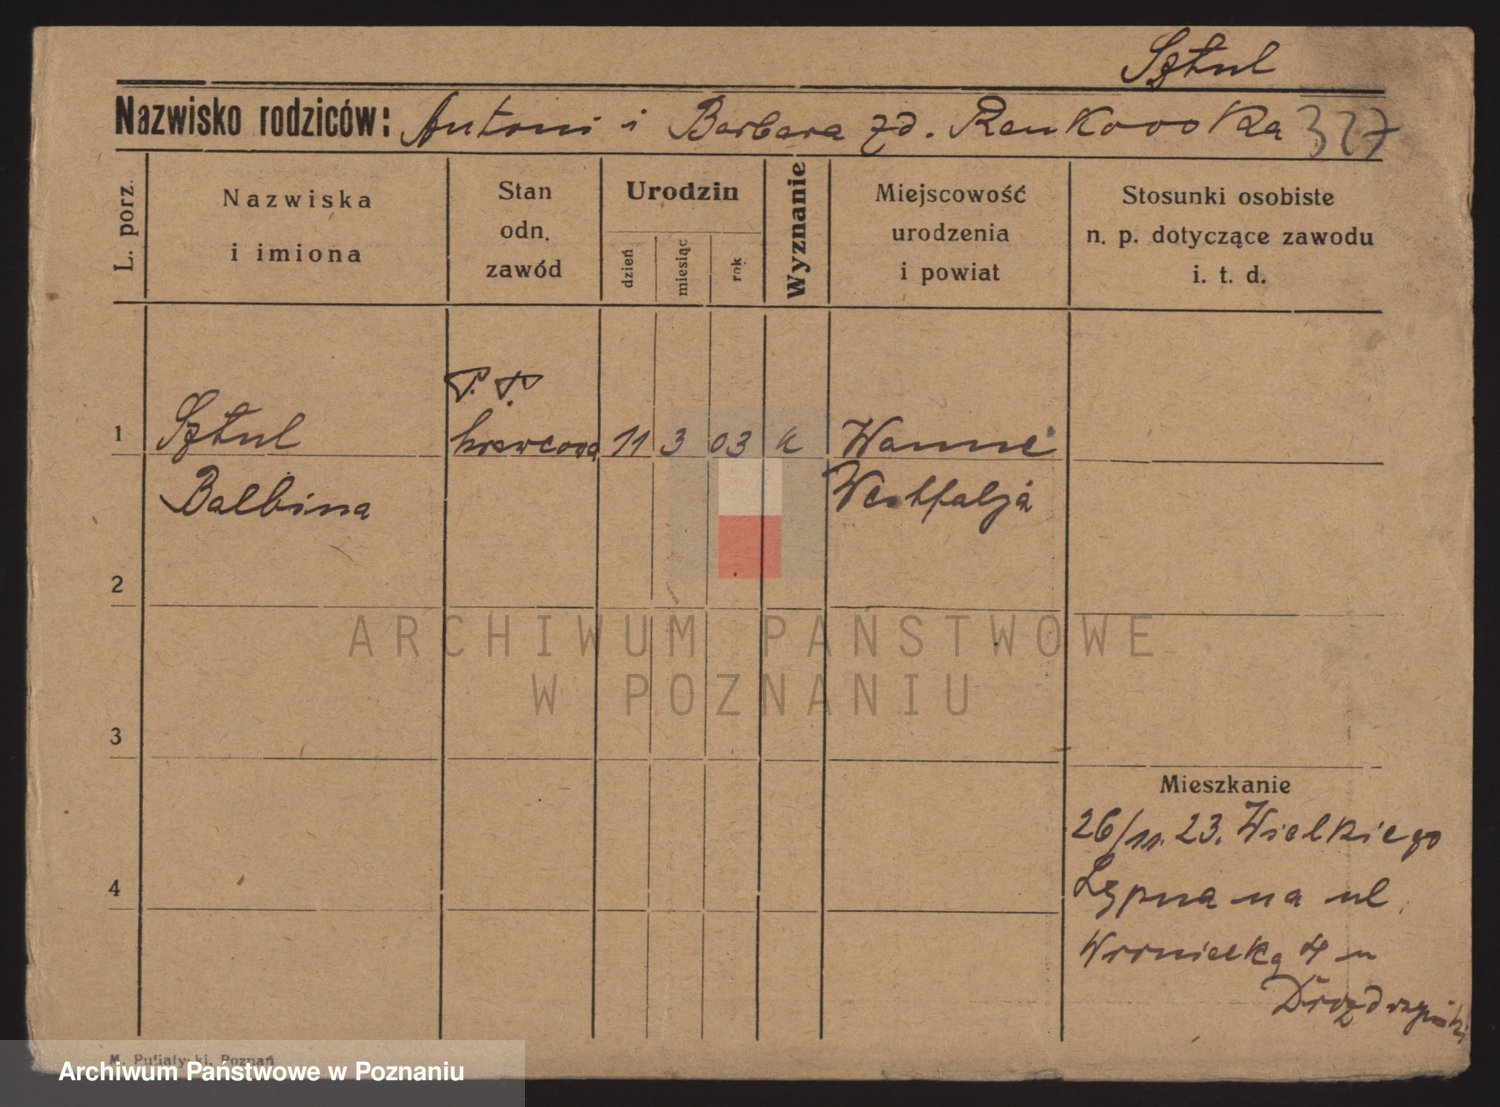 Sztul
Nazwisko rodziców: Antoni i Barbara zd. Rankowska 327
L. porz.
Nazwiska
i imiona
Stan
odn.
zawód
Urodzin
dzień
miesiąc
rok
Wyznanie
Miejscowość
urodzenia
i powiat
Stosunki osobiste
n. p. dotyczące zawodu
i. t. d.
1 Sztul krawcowa 11 3 03 k Wanne
Balbina Westfalja
2
3
4
Mieszkanie
26/11. 23. Wielkiego
na ul
4 m
M. Putiatycki, Poznań
ARCHIWUM PAŃSTWOWE
W POZNANIU
Archiwum Państwowe w Poznaniu